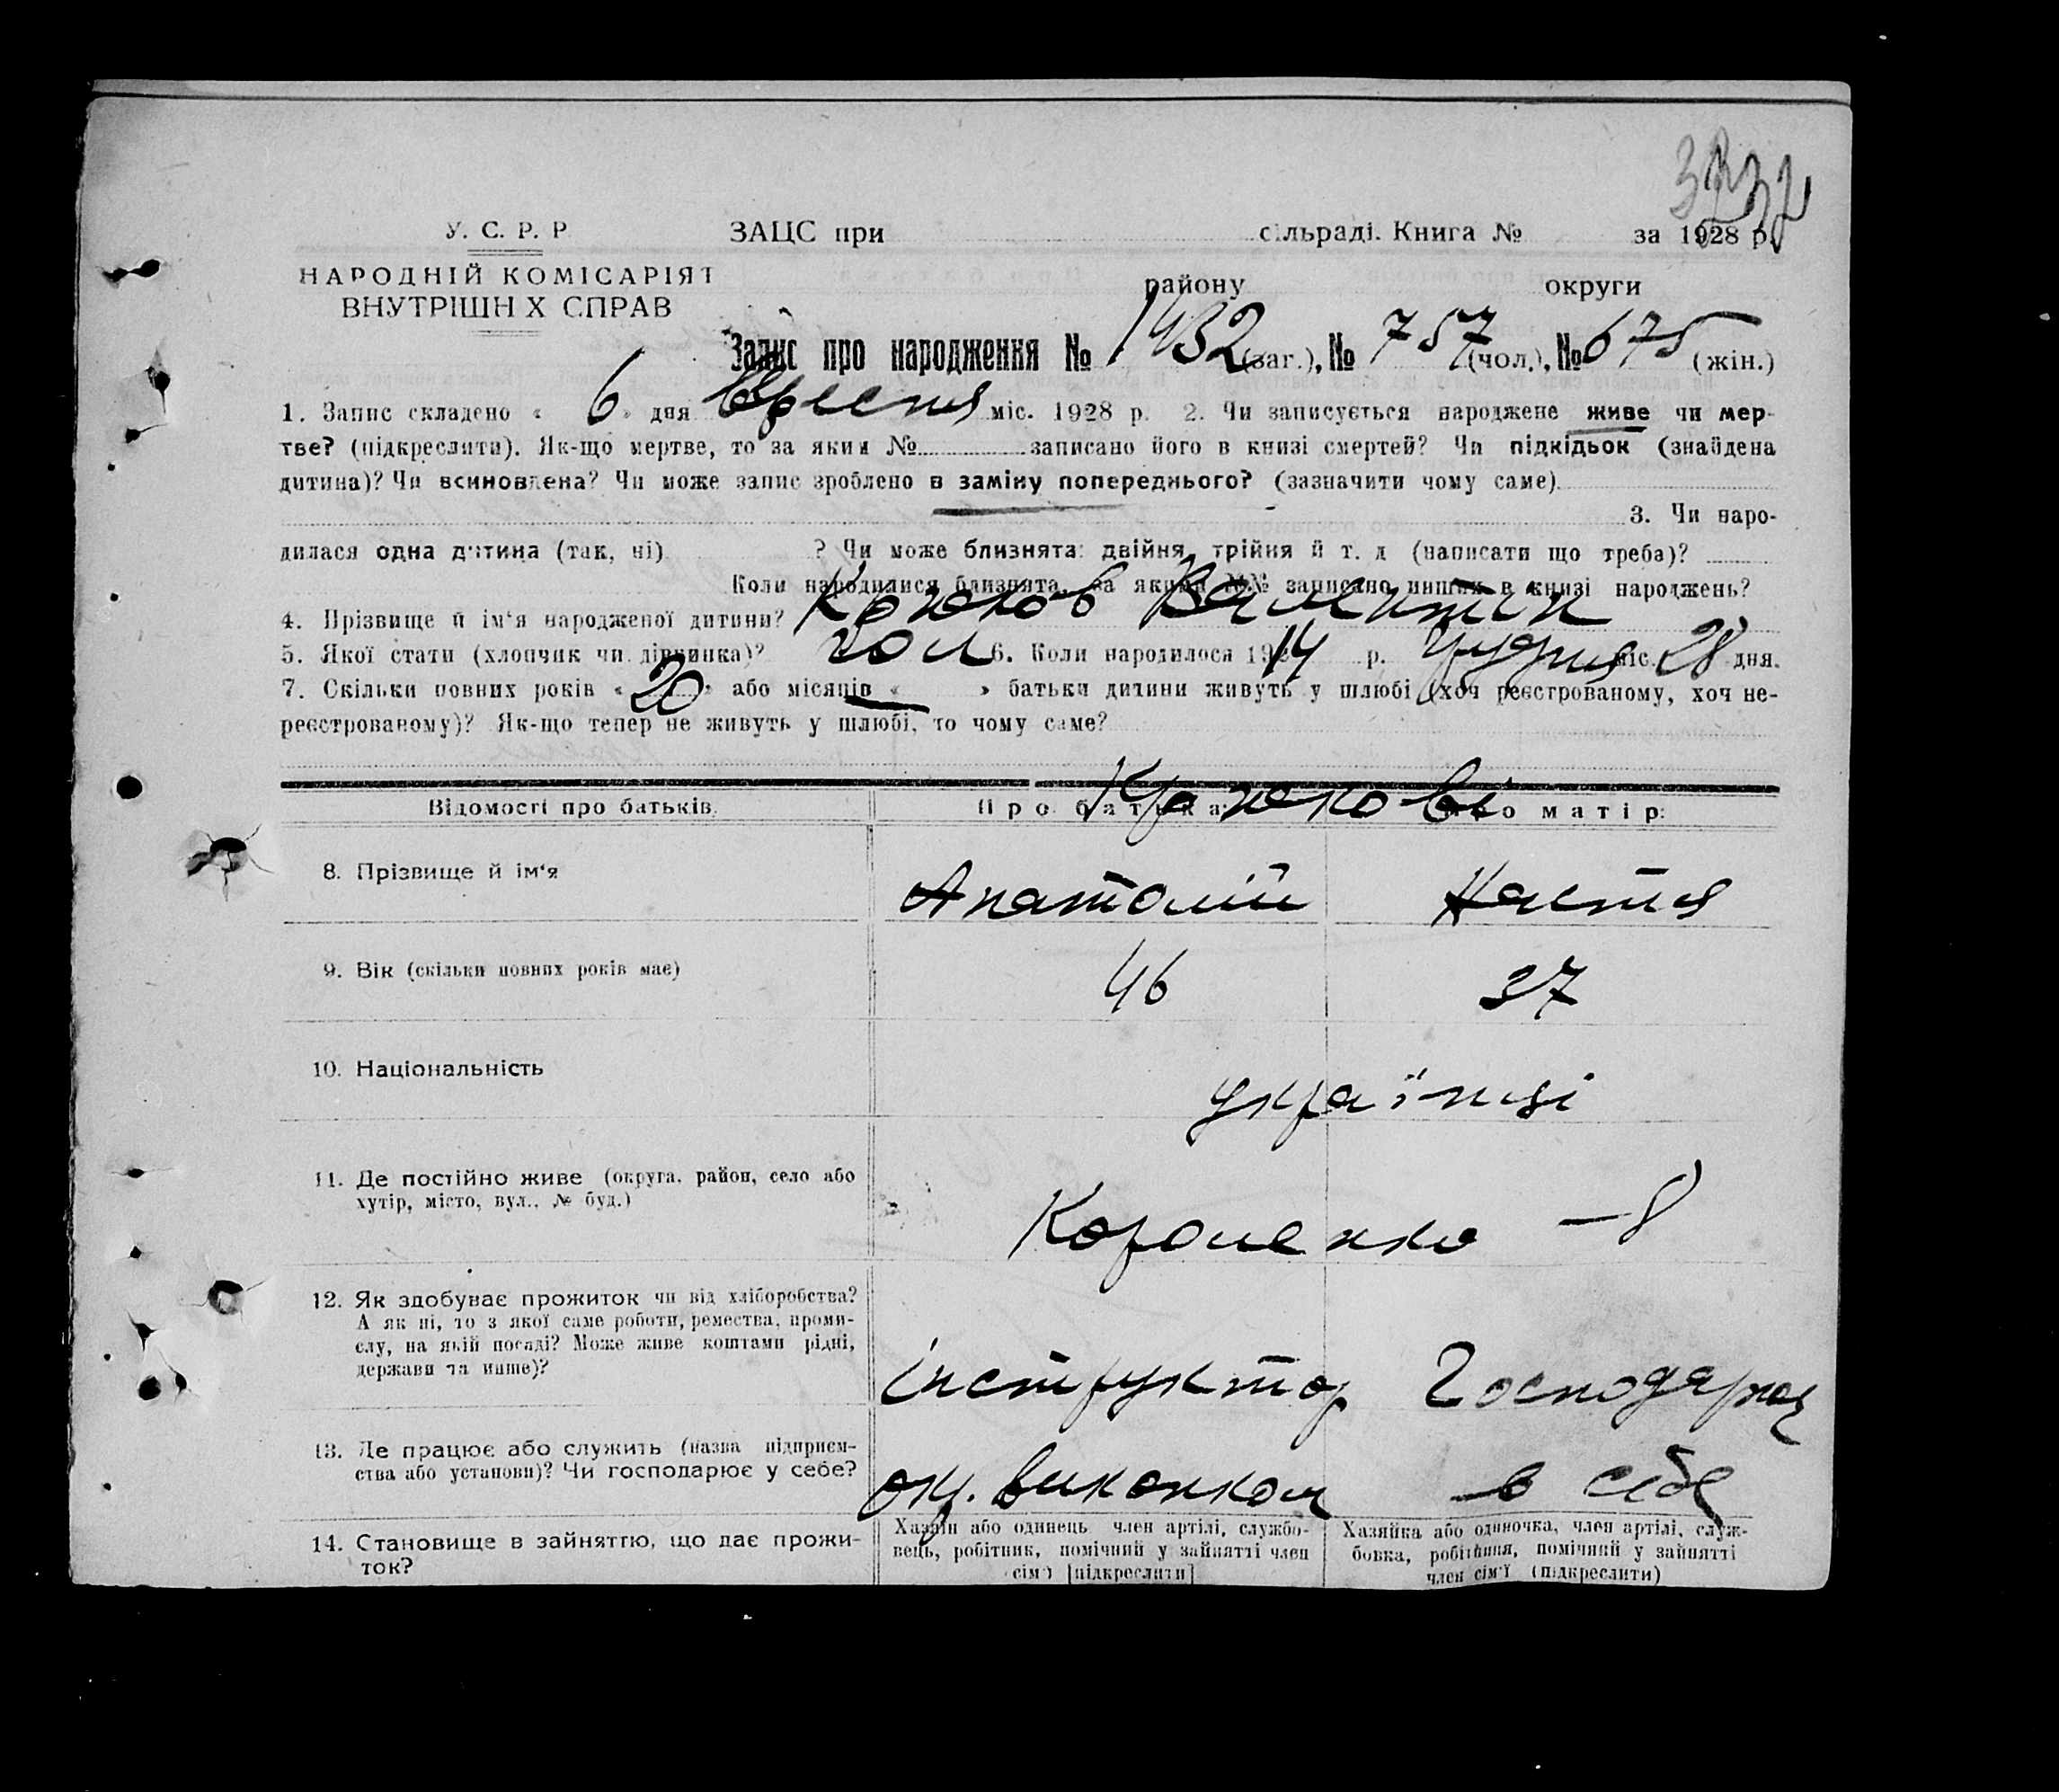 У. С. Р. Р.
НАРОДНІЙ КОМІСАРІЯТ
ВНУТРІШН Х СПРАВ
ЗАЦС при сільраді. Книга № за 1928 р.
району округи
Запис про народження № 1432 (заг.), № 757 (чол.), № 675 (жін.)
1. Запис складено « 6 » дня Вресня міс. 1928 р. 2. Чи записується народжене живе чи мер-
тве? (підкреслити). Як-що мертве, то за яким № записано його в книзі смертей? Чи підкідьок (знайдена
дитина)? Чи всиновлена? Чи може запис зроблено в заміну попереднього? (зазначити чому саме)
3. Чи наро-
дилася одна дитина (так, ні) ? Чи може близнята: двійня, трійня й т. д (написати що треба)?
Коли народилися близнята, за якими №№ записано инших в книзі народжень?
4. Прізвище й ім'я народженої дитини? Валентин
5. Якої стати (хлопчик чи дівчинка)? чол 6. Коли народилося 1914 р. Грудня міс. 28 дня.
7. Скільки повних років « 20 » або місяців « — » батьки дитини живуть у шлюбі (хоч реєстрованому, хоч не-
реєстрованому)? Як-що тепер не живуть у шлюбі, то чому саме?
Відомості про батьків. Про батька: Про матір:
8. Прізвище й ім'я Анатолій Настя
9. Вік (скільки повних років має) 46 37
10. Національність українці
11. Де постійно живе (округа, район, село або
хутір, місто, вул., № буд.) Короленко — 8
12. Як здобуває прожиток чи від хліборобства?
А як ні, то з якої саме роботи, ремества, проми-
слу, на якій посаді? Може живе коштами рідні,
держави та инше)? інструктор Господарює
13. Де працює або служить (назва підприєм-
ства або установи)? Чи господарює у себе? окр. виконком в себе
14. Становище в зайняттю, що дає прожи-
ток?
Хазяїн або одинець член артілі, службо-
вець, робітник, помічний у зайнятті член
сім'ї [підкреслити]
Хазяйка або одиночка, член артілі, служ-
бовка, робітниця, помічний у зайнятті
член сім'ї (підкреслити)